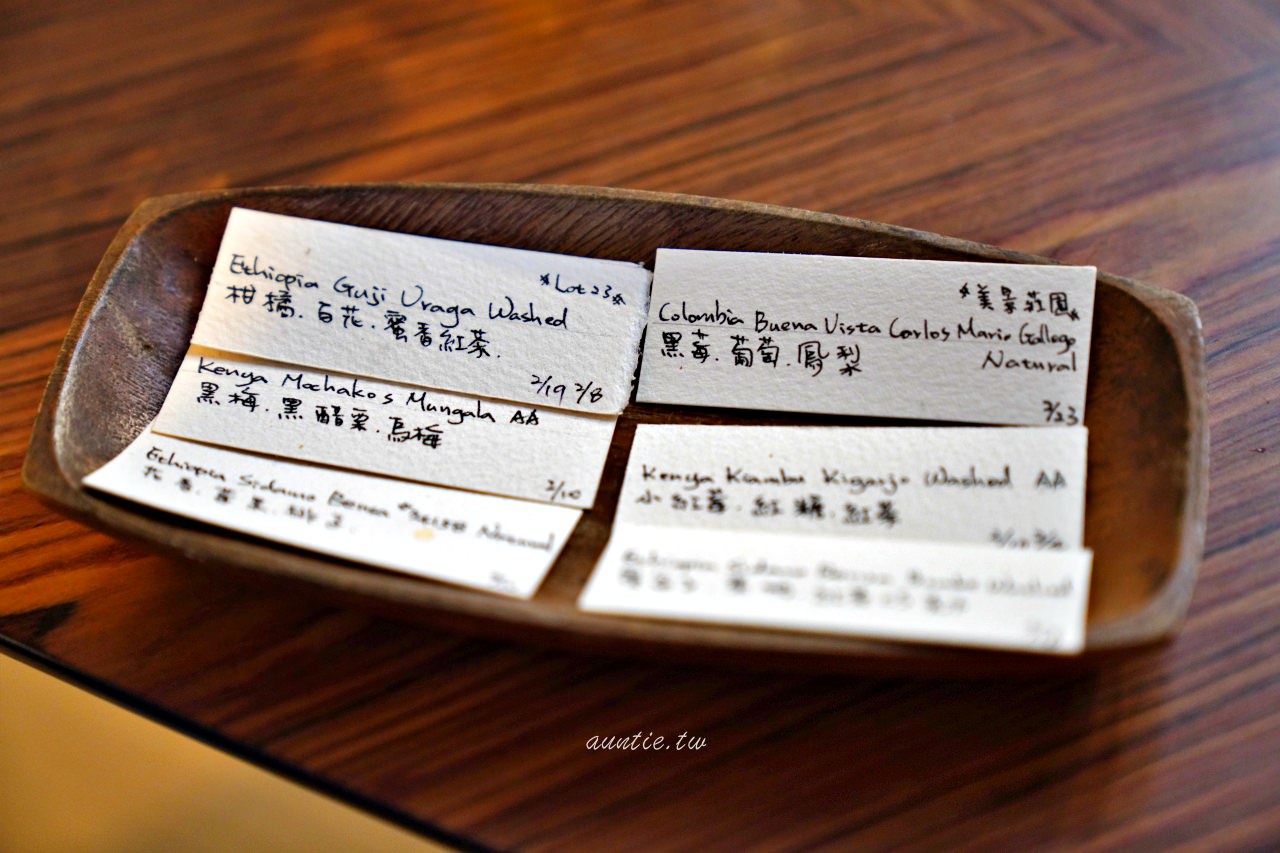 *Lot 23*
Ethiopia Guji Uraga Washed
柑橘.百花.蜜香紅茶.
2/19 2/8
Kenya Machakos Mungala AA
黑梅.黑醋栗.烏梅
2/10
Ethiopia Sidamo Bensa Natural
花香.
*美景莊園*
Colombia Buena Vista Carlos Mario Gallego
黑莓.葡萄.鳳梨
Natural
2/23
Kenya Kiambu Kiganjo Washed AA
小紅莓.紅糖.紅茶
Ethiopia Sidamo Washed
auntie.tw